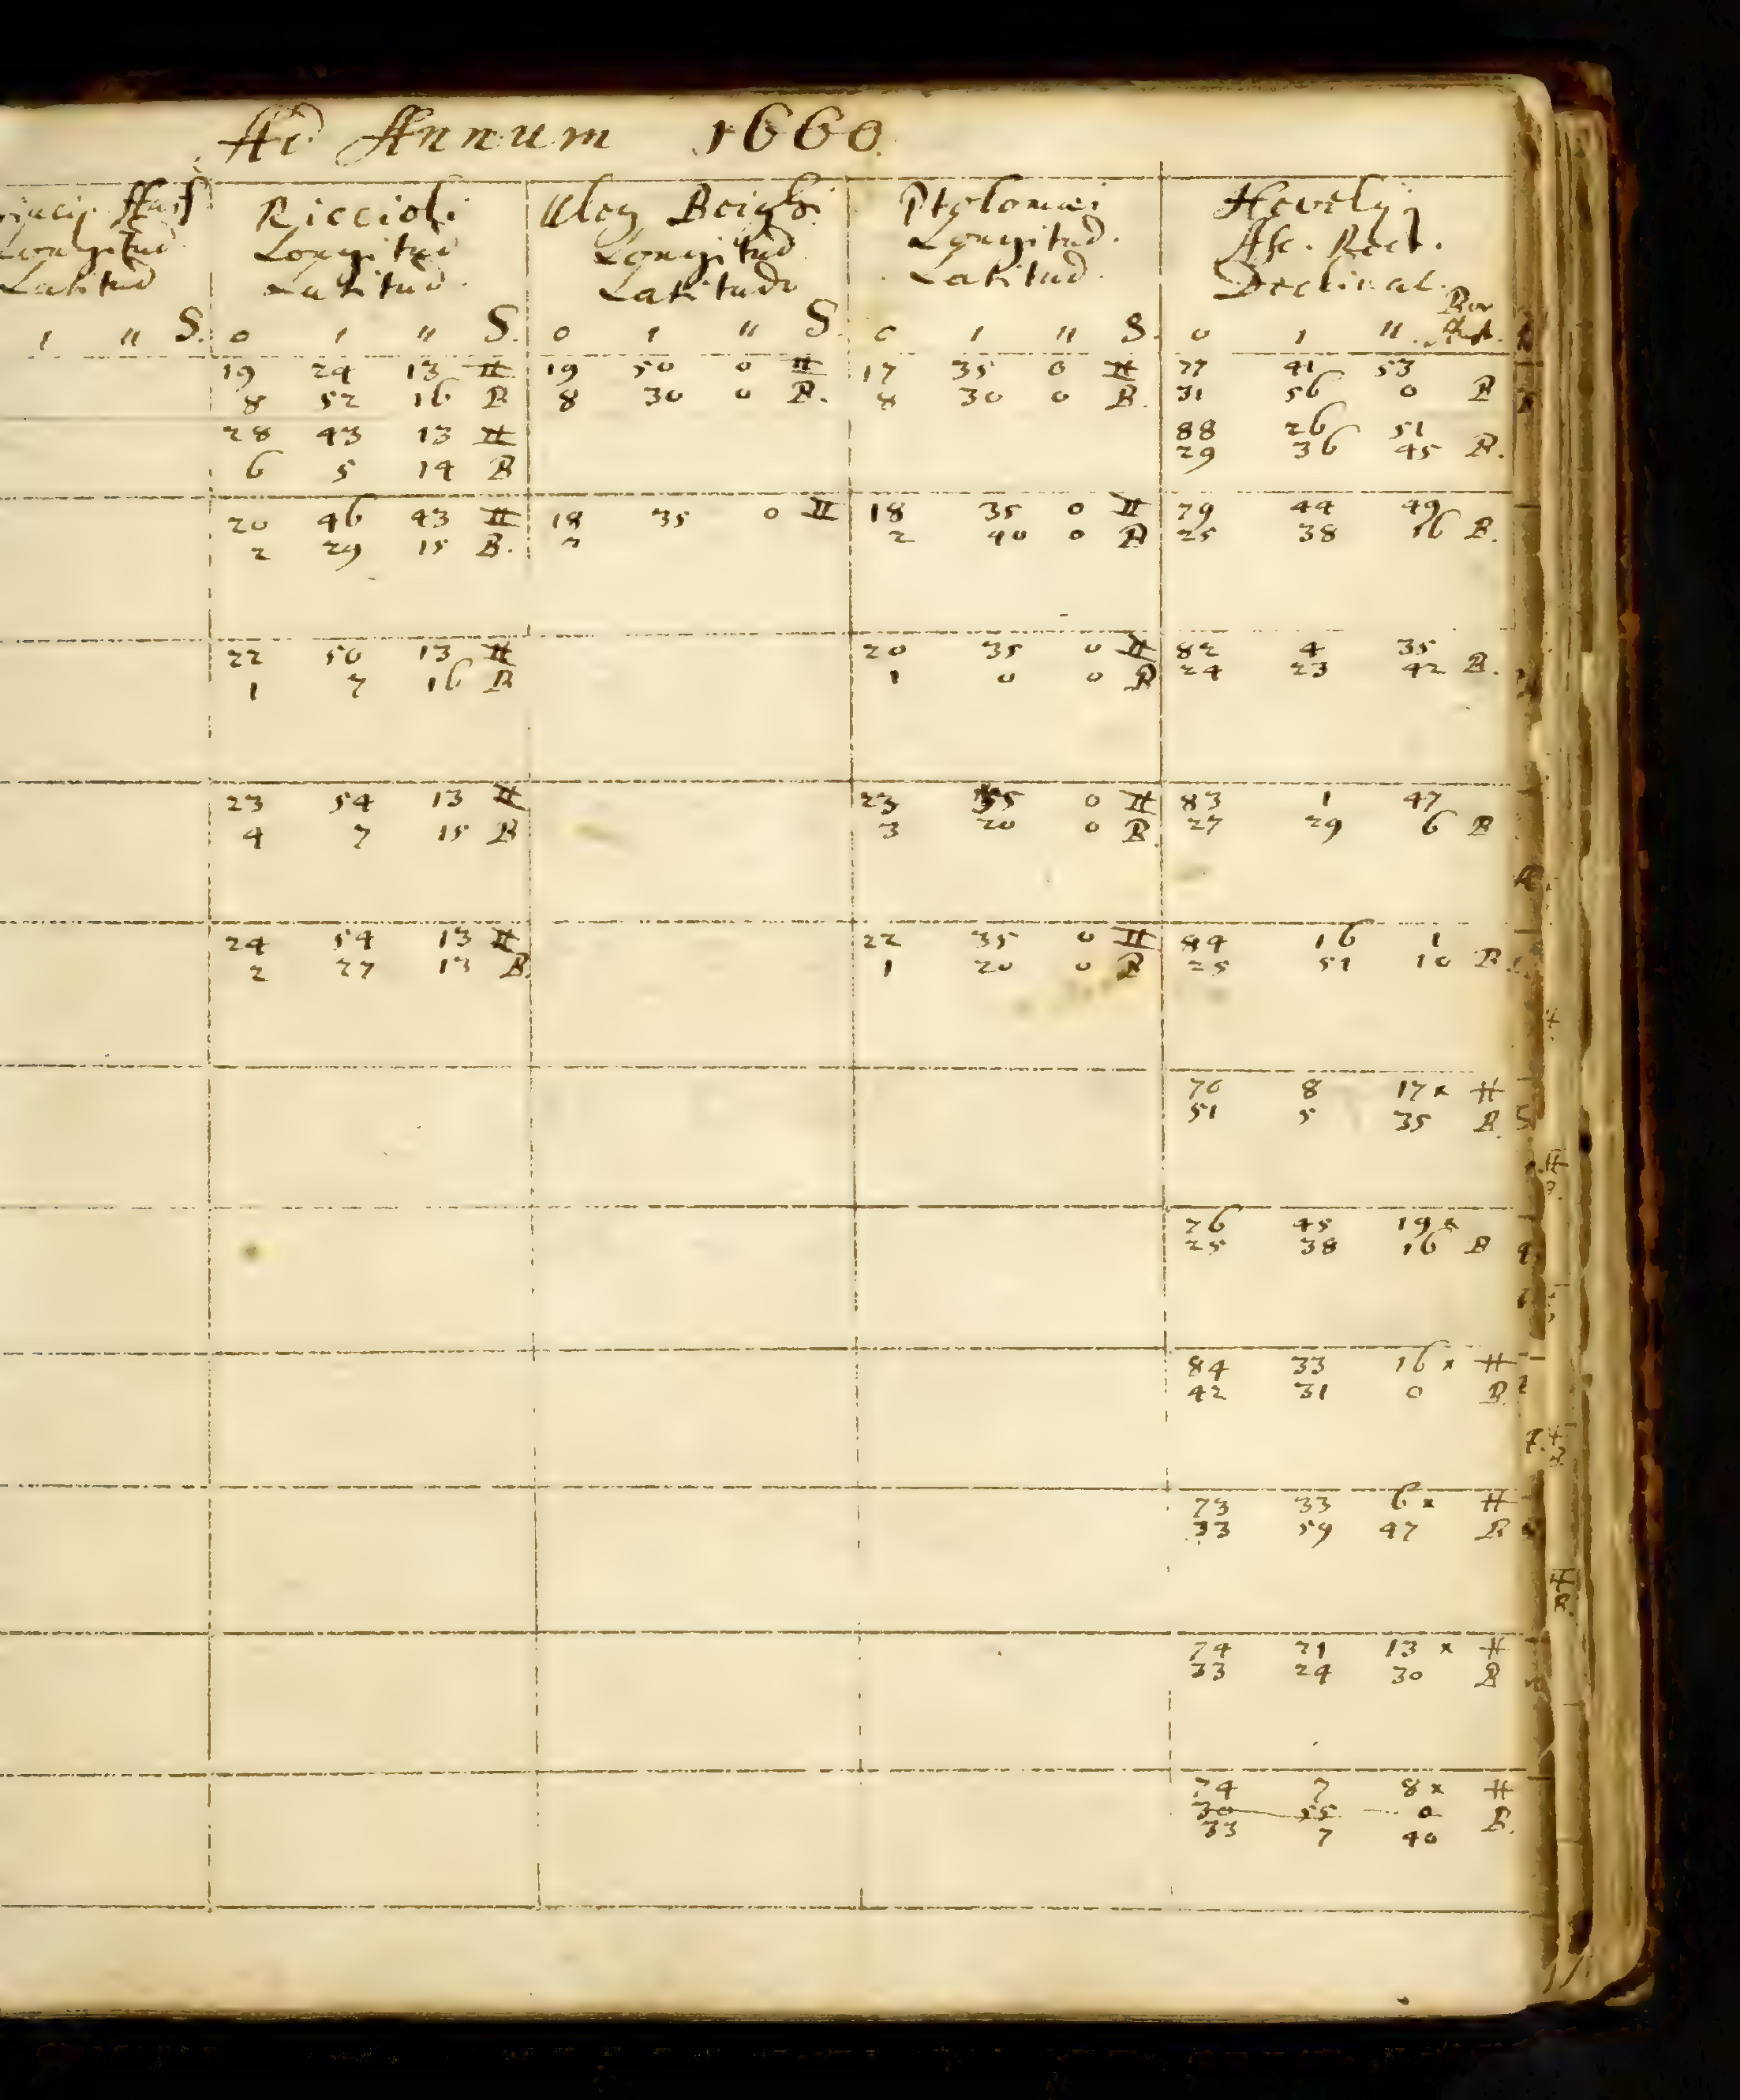 Ad Annum 1660
Longitud Latitud
Riccioli Longitud Latitud.
Uleg Beighi Longitud Latitudo
Ptolomæi Longitud. Latitud.
Hevelij Asc. Rect. Declinat. Bor Aust.
ı ıı S. o ı ıı S. o ı ıı S. o ı ıı S. o ı ıı
19 24 13 ♊ 19 50 0 ♊ 17 35 0 ♊ 77 41 53
8 52 16 B 8 30 0 B. 8 30 0 B. 31 56 0 B
28 43 13 ♊ 88 26 51
6 5 14 B 29 36 45 B.
20 46 43 ♊ 18 35 0 ♊ 18 35 0 ♊ 79 44 49
2 29 15 B. 2 2 40 0 B 25 38 16 B.
22 50 13 ♊ 20 35 0 ♊ 82 4 35
1 7 16 B 1 0 0 B 24 23 42 B.
23 54 13 ♊ 23 0 ♊ 83 1 47
4 7 15 B 3 20 0 B. 27 29 6 B
24 54 13 ♊ 22 35 0 ♊ 84 16 1
2 27 13 B. 1 20 0 B 25 51 10 B.
70 8 17 × ♊
51 5 35 B.
76 45 19 ×
25 38 16 B
84 33 16 × ♊
42 31 0 B.
73 33 6 × ♊
33 59 47 B
74 21 13 × ♊
33 24 30 B
74 7 8 × ♊
30 55 0 B.
33 7 40